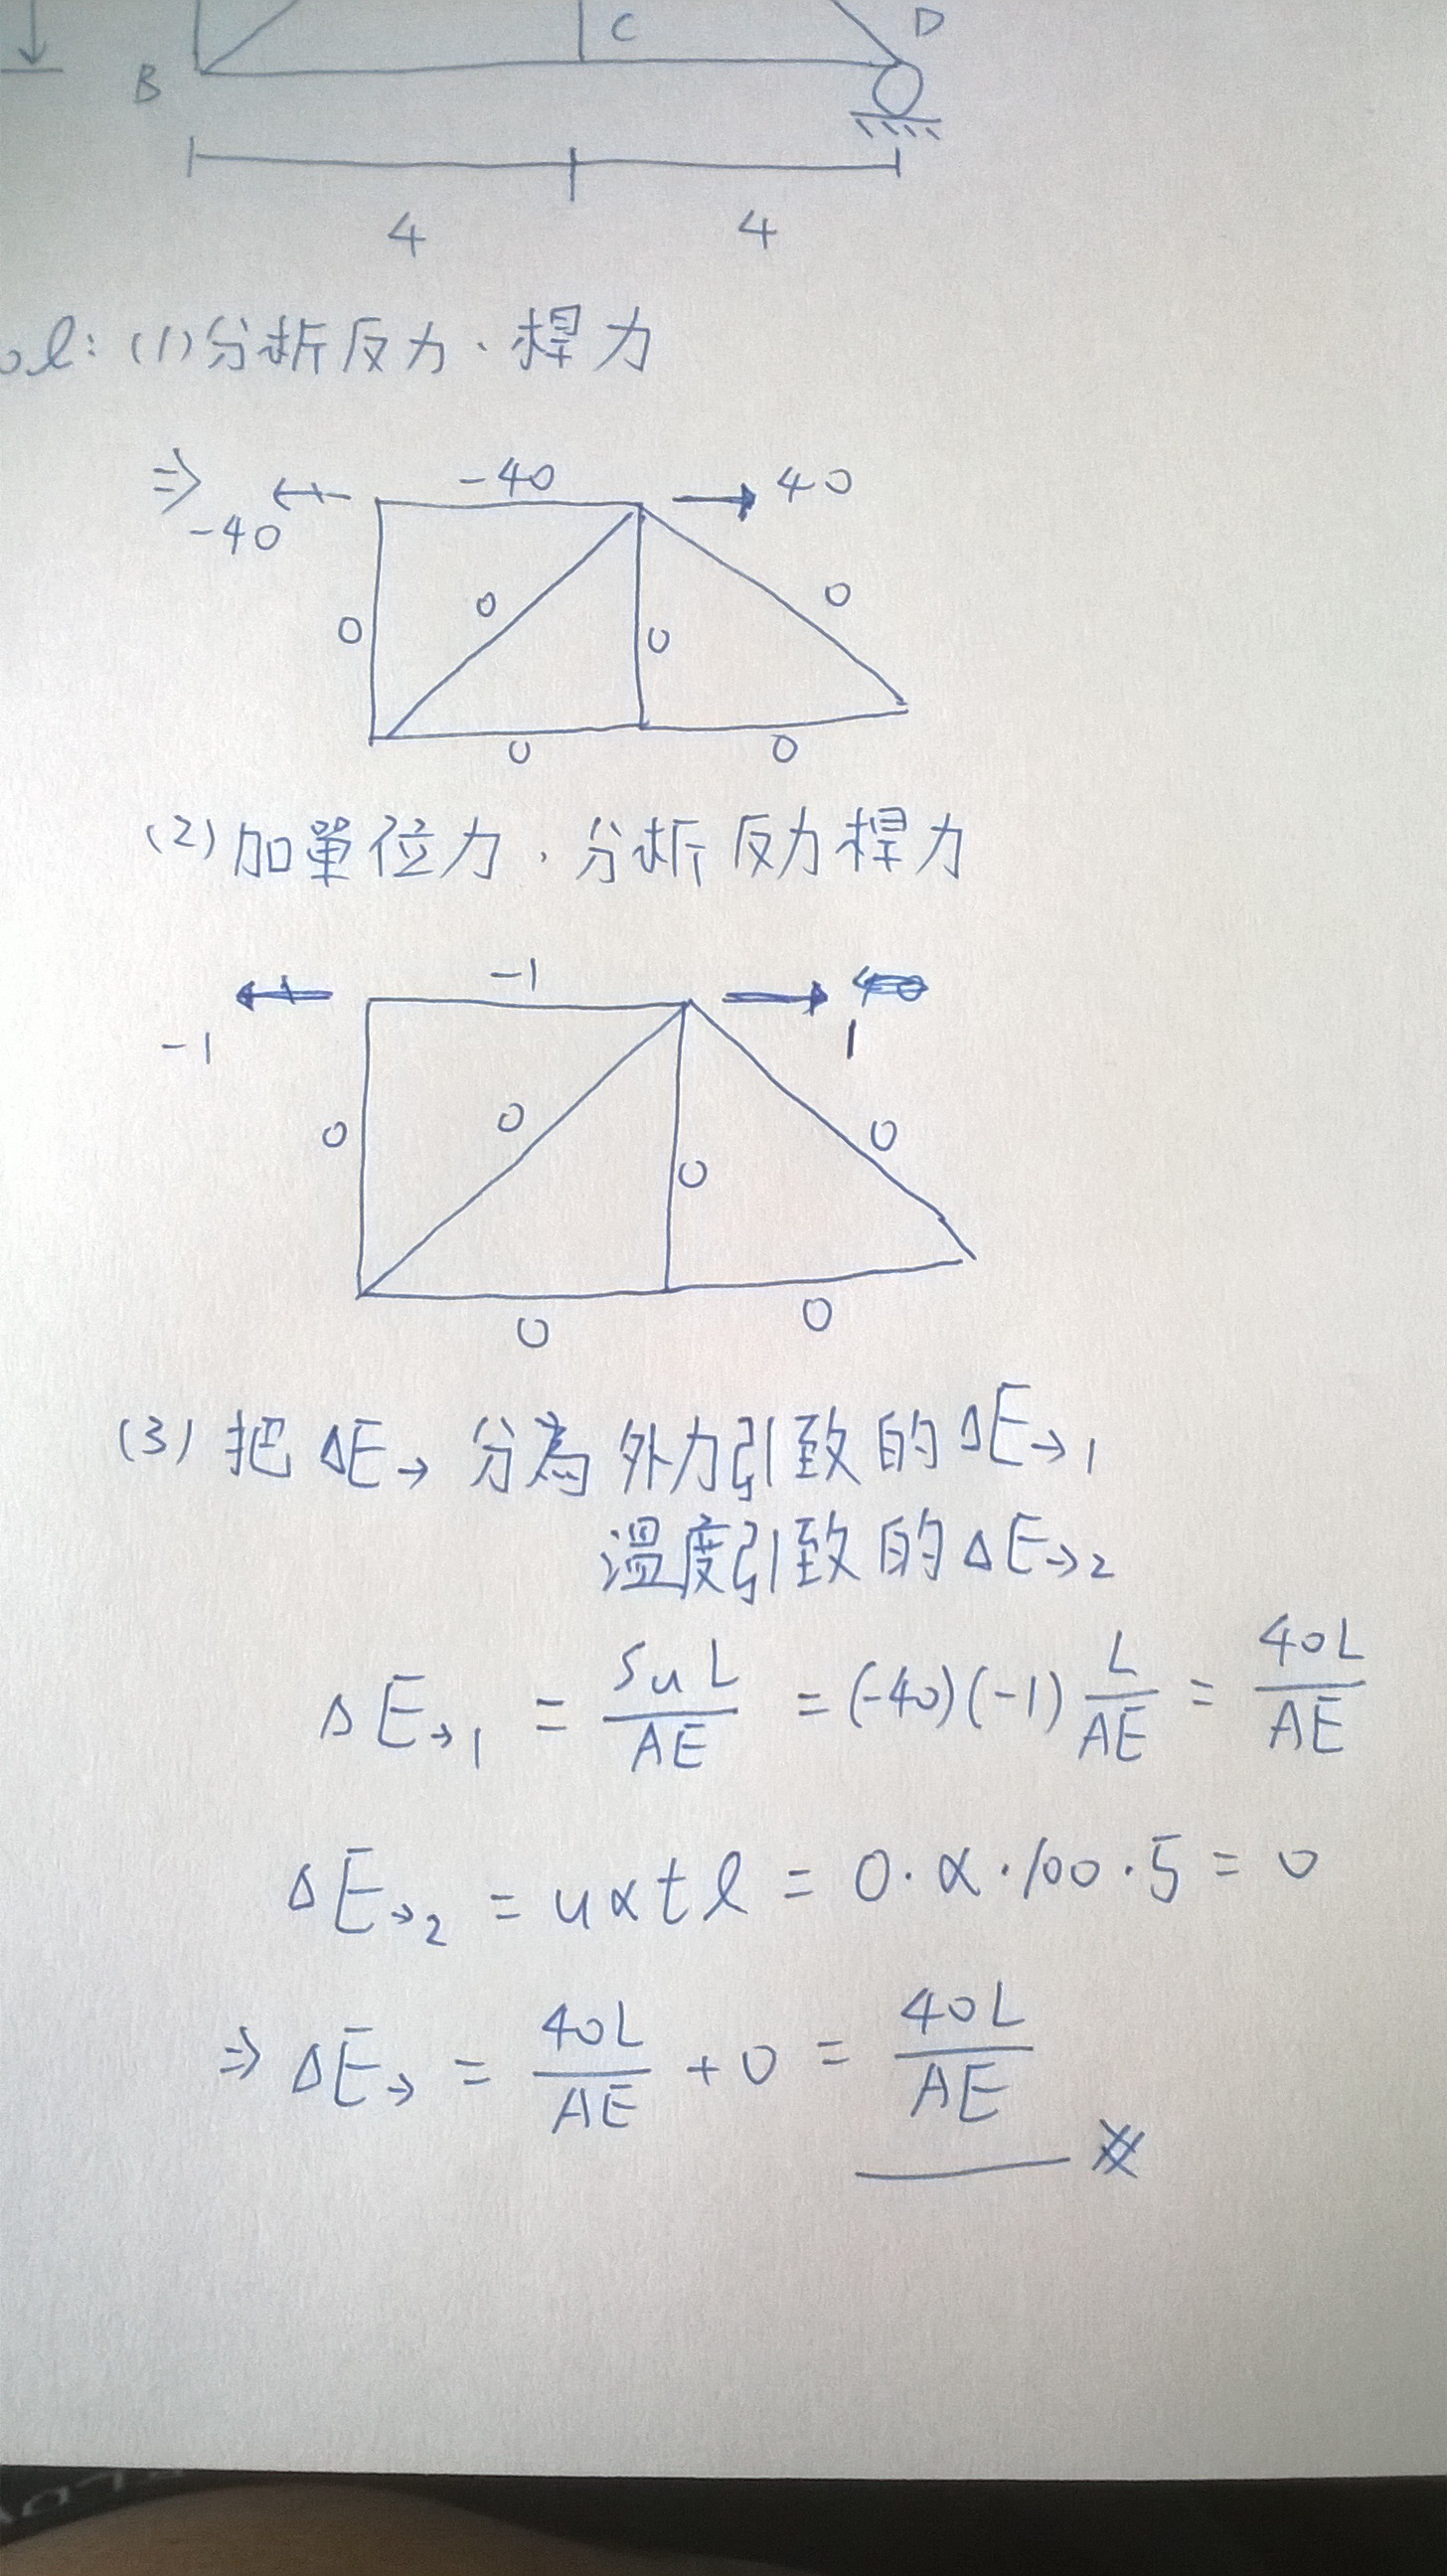 C D
B
4 4
ol: (1) 分析反力、桿力
⇒ -40 → 40
←
-40
0 0 0 0
0 0
(2) 加單位力、分析反力桿力
-1
-1 1
0 0 0 0
0 0
(3) 把 ΔE→ 分為 外力引致的 ΔE→1
溫度引致的 ΔE→2
ΔE→1 = SuL/AE = (-40)(-1) L/AE = 40L/AE
ΔE→2 = uαtl = 0·α·100·5 = 0
⇒ ΔE→ = 40L/AE + 0 = 40L/AE